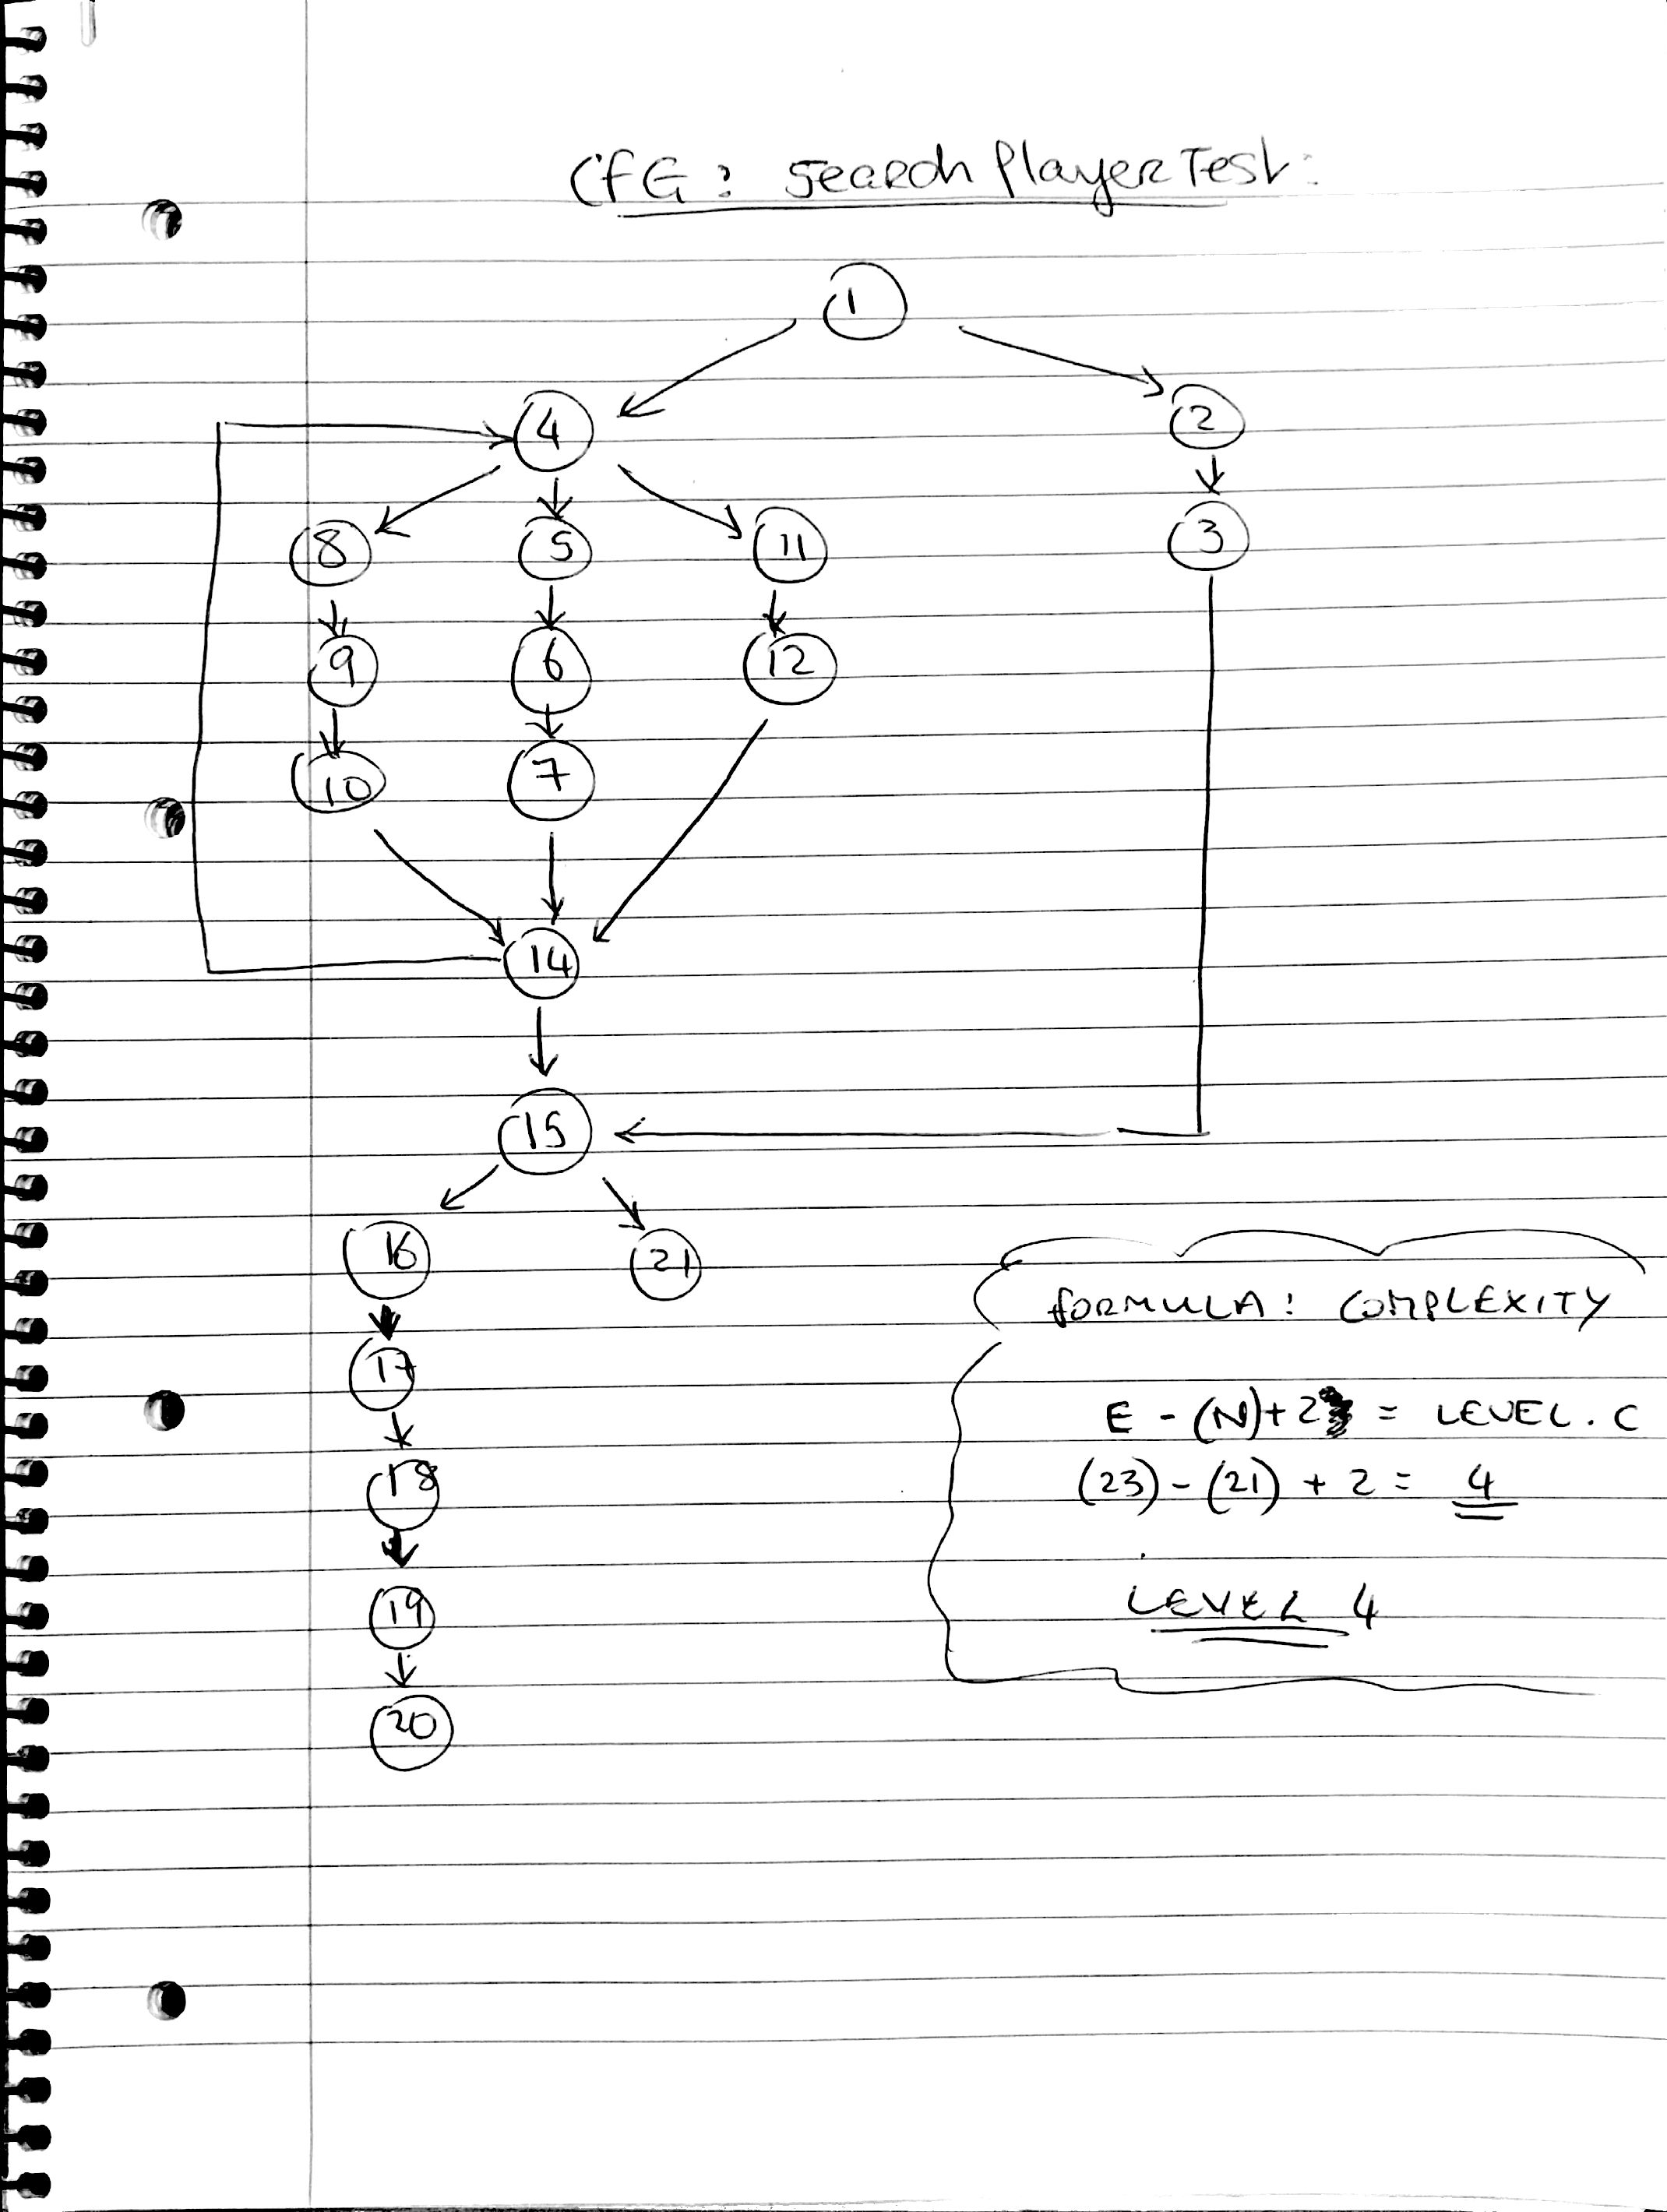 CFG: Search Player Test:
1
4 2
8 5 11 3
9 6 12
10 7
14
15
16 21
17
18
19
20
FORMULA: COMPLEXITY
E - (N) + 2 = LEVEL. C
(23) - (21) + 2 = 4
LEVEL 4